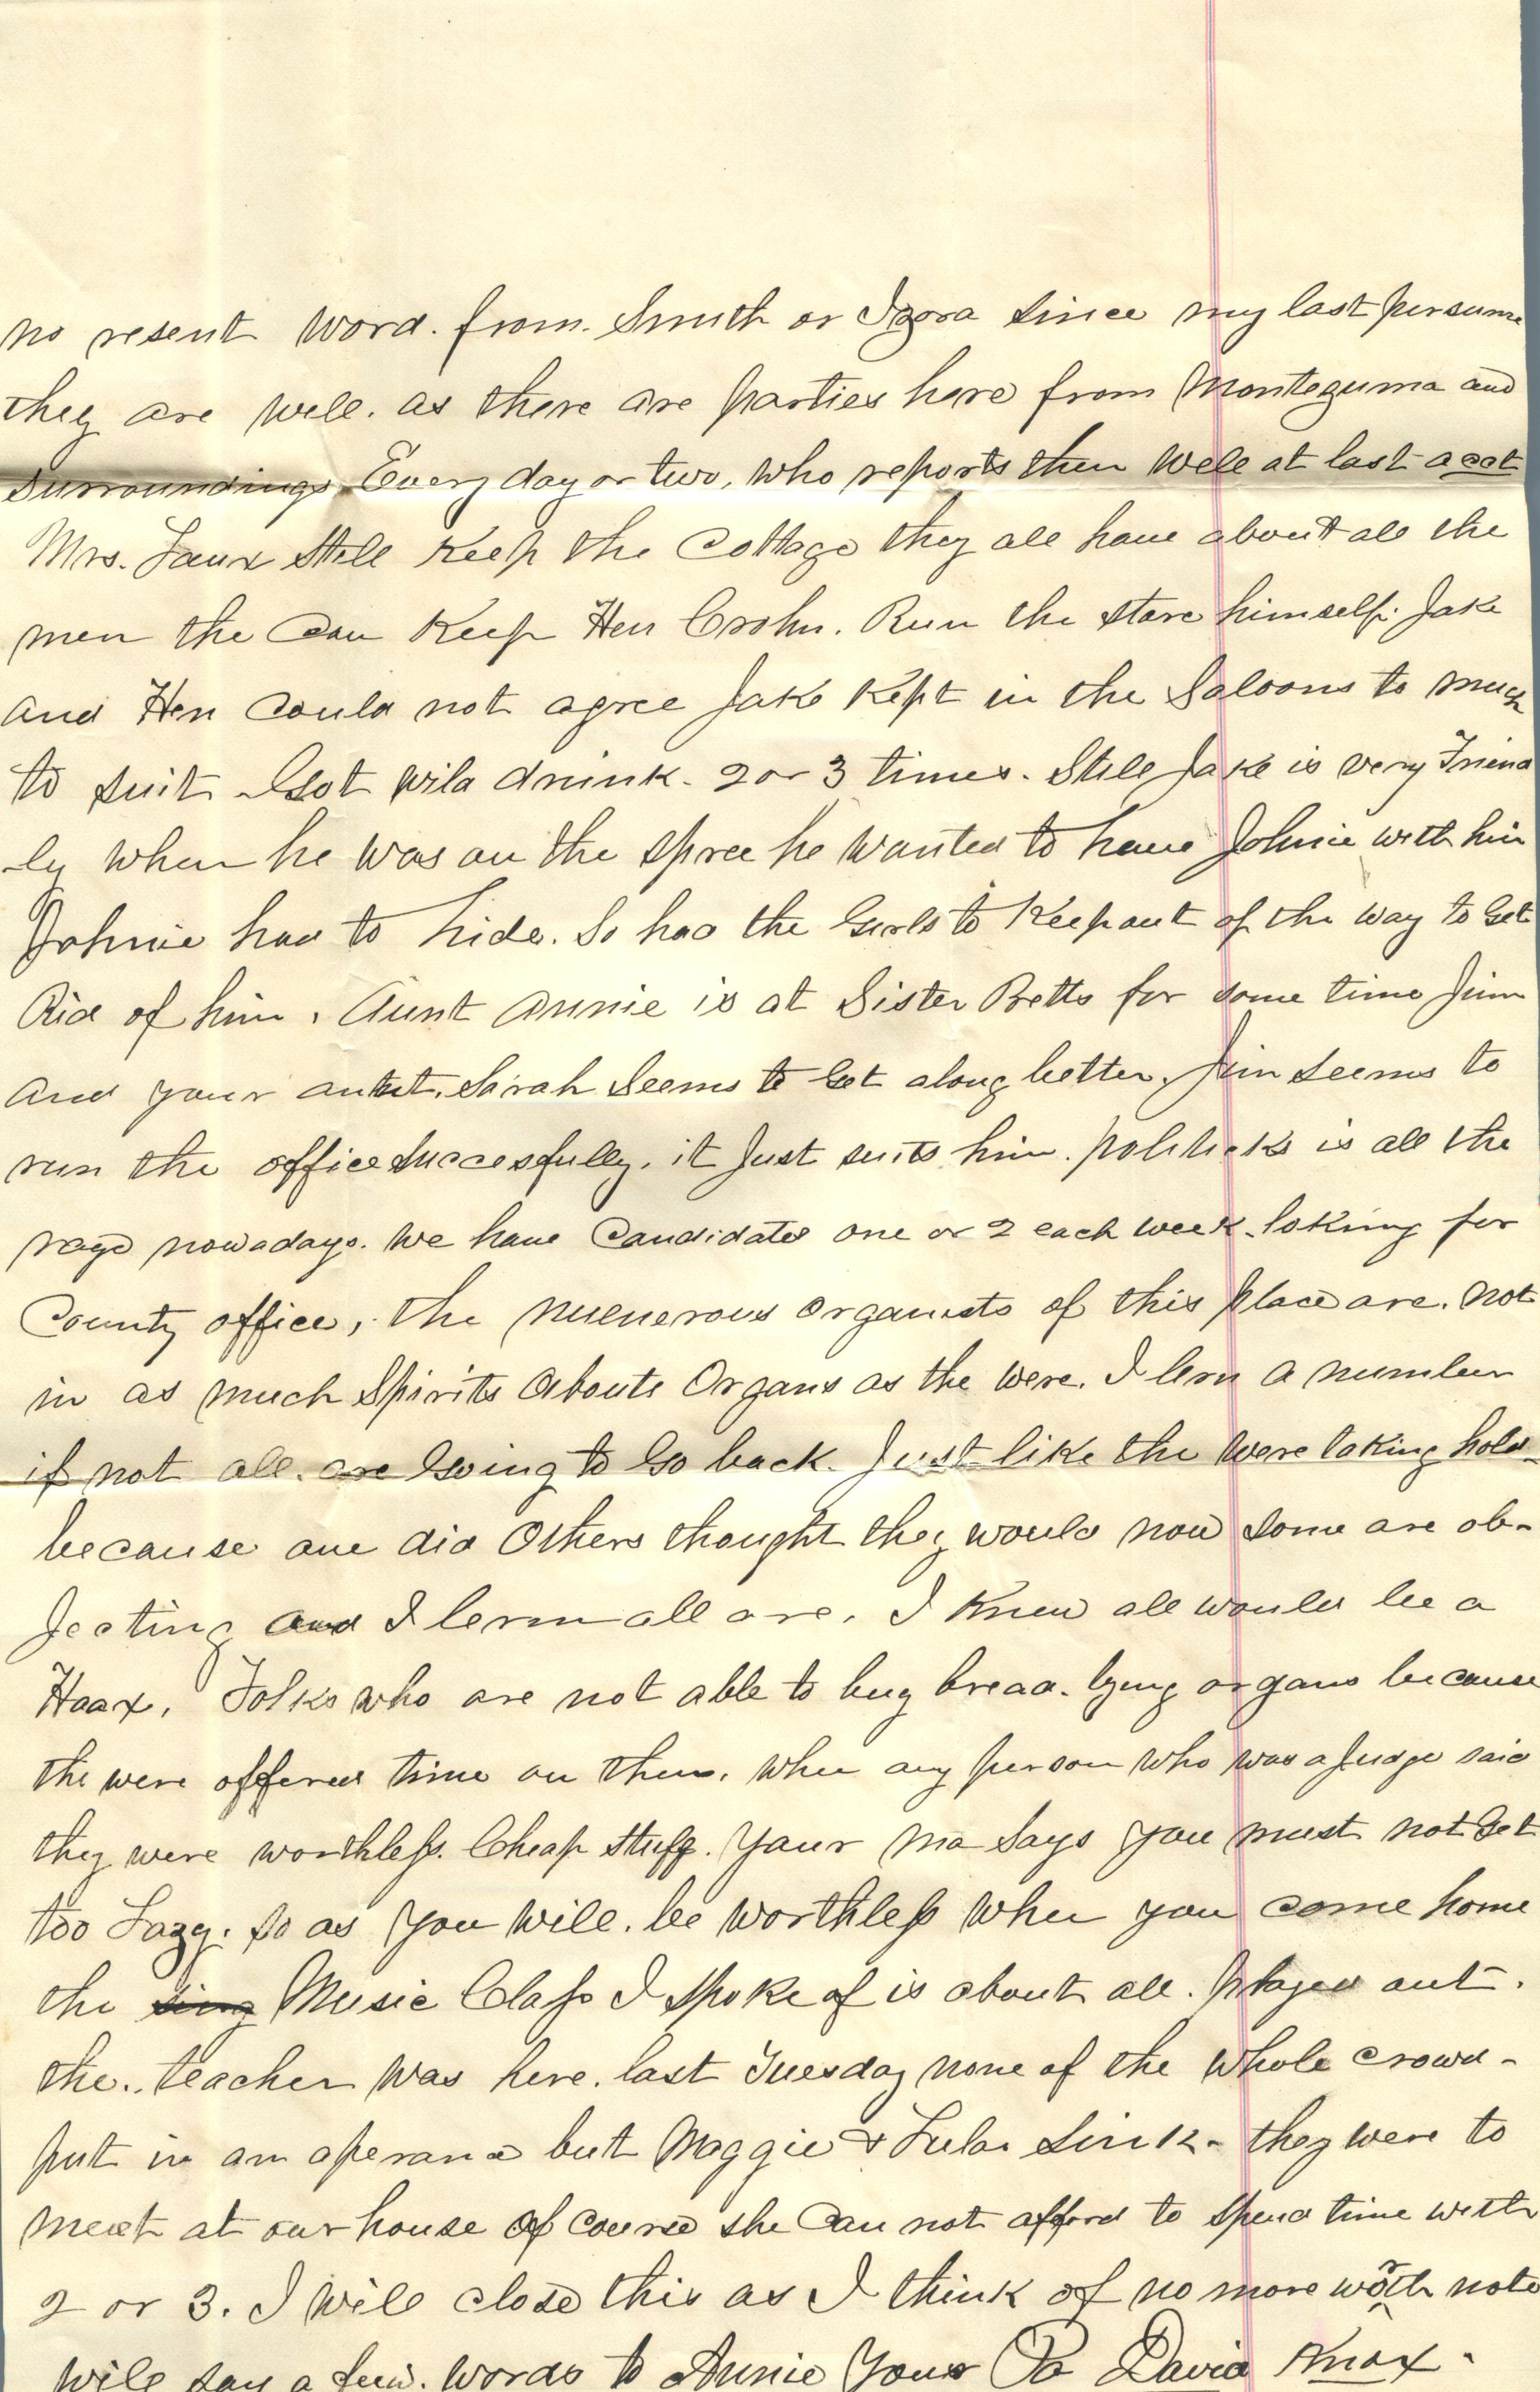 no resent word. from. Smith or Izora since my last persume
they are well. as there are parties here from Montezuma and
surroundings Every day or two, who reports them well at last acct
Mrs. Faux still keep the Cottage they all have about all the
men the can keep Hen Crohn. Run the store himself. Jake
and Hen could not agree Jake kept in the Saloons to much
to suit Got wild drunk. 2 or 3 times. Still Jake is very Friend
-ly when he was on the spree he wanted to have Johnie with him
Johnie had to hide. So had the Girls to keep out of the way to Get
Rid of him. Aunt Annie is at Sister Betts for some time Jim
and your autnt. Sarah Seems to Get along better. Jim seems to
run the office succesfully. it Just suits him. politicks is all the
rage nowadays. we have Candidates one or 2 each week. loking for
County office, the nuenerous organists of this place are. not
in as much Spirits Aboute Organs as the were. I lern a number
if not all. are Going to Go back. Just like the were taking hold-
because one did Others thought they would now some are ob-
Jecting and I lern all are. I knew all would be a
Hoax. Folks who are not able to buy bread. bying organs because
the were offered time on them. when any person who was a Judge said
they were worthless. Cheap stuff. Your Ma Says you must not Get
too Lazy. so as you will. be worthless when you come home
the sing Music Class I spoke of is about all. played out.
the. teacher was here. last Tuesday none of the whole crowd-
put in an aperance but Maggie & Lula Sink- they were to
meet at our house Of course she Can not afford to spend time with
2 or 3. I will close this as I think of no more worth note
will say a few. words to Annie Your Pa David Knox.